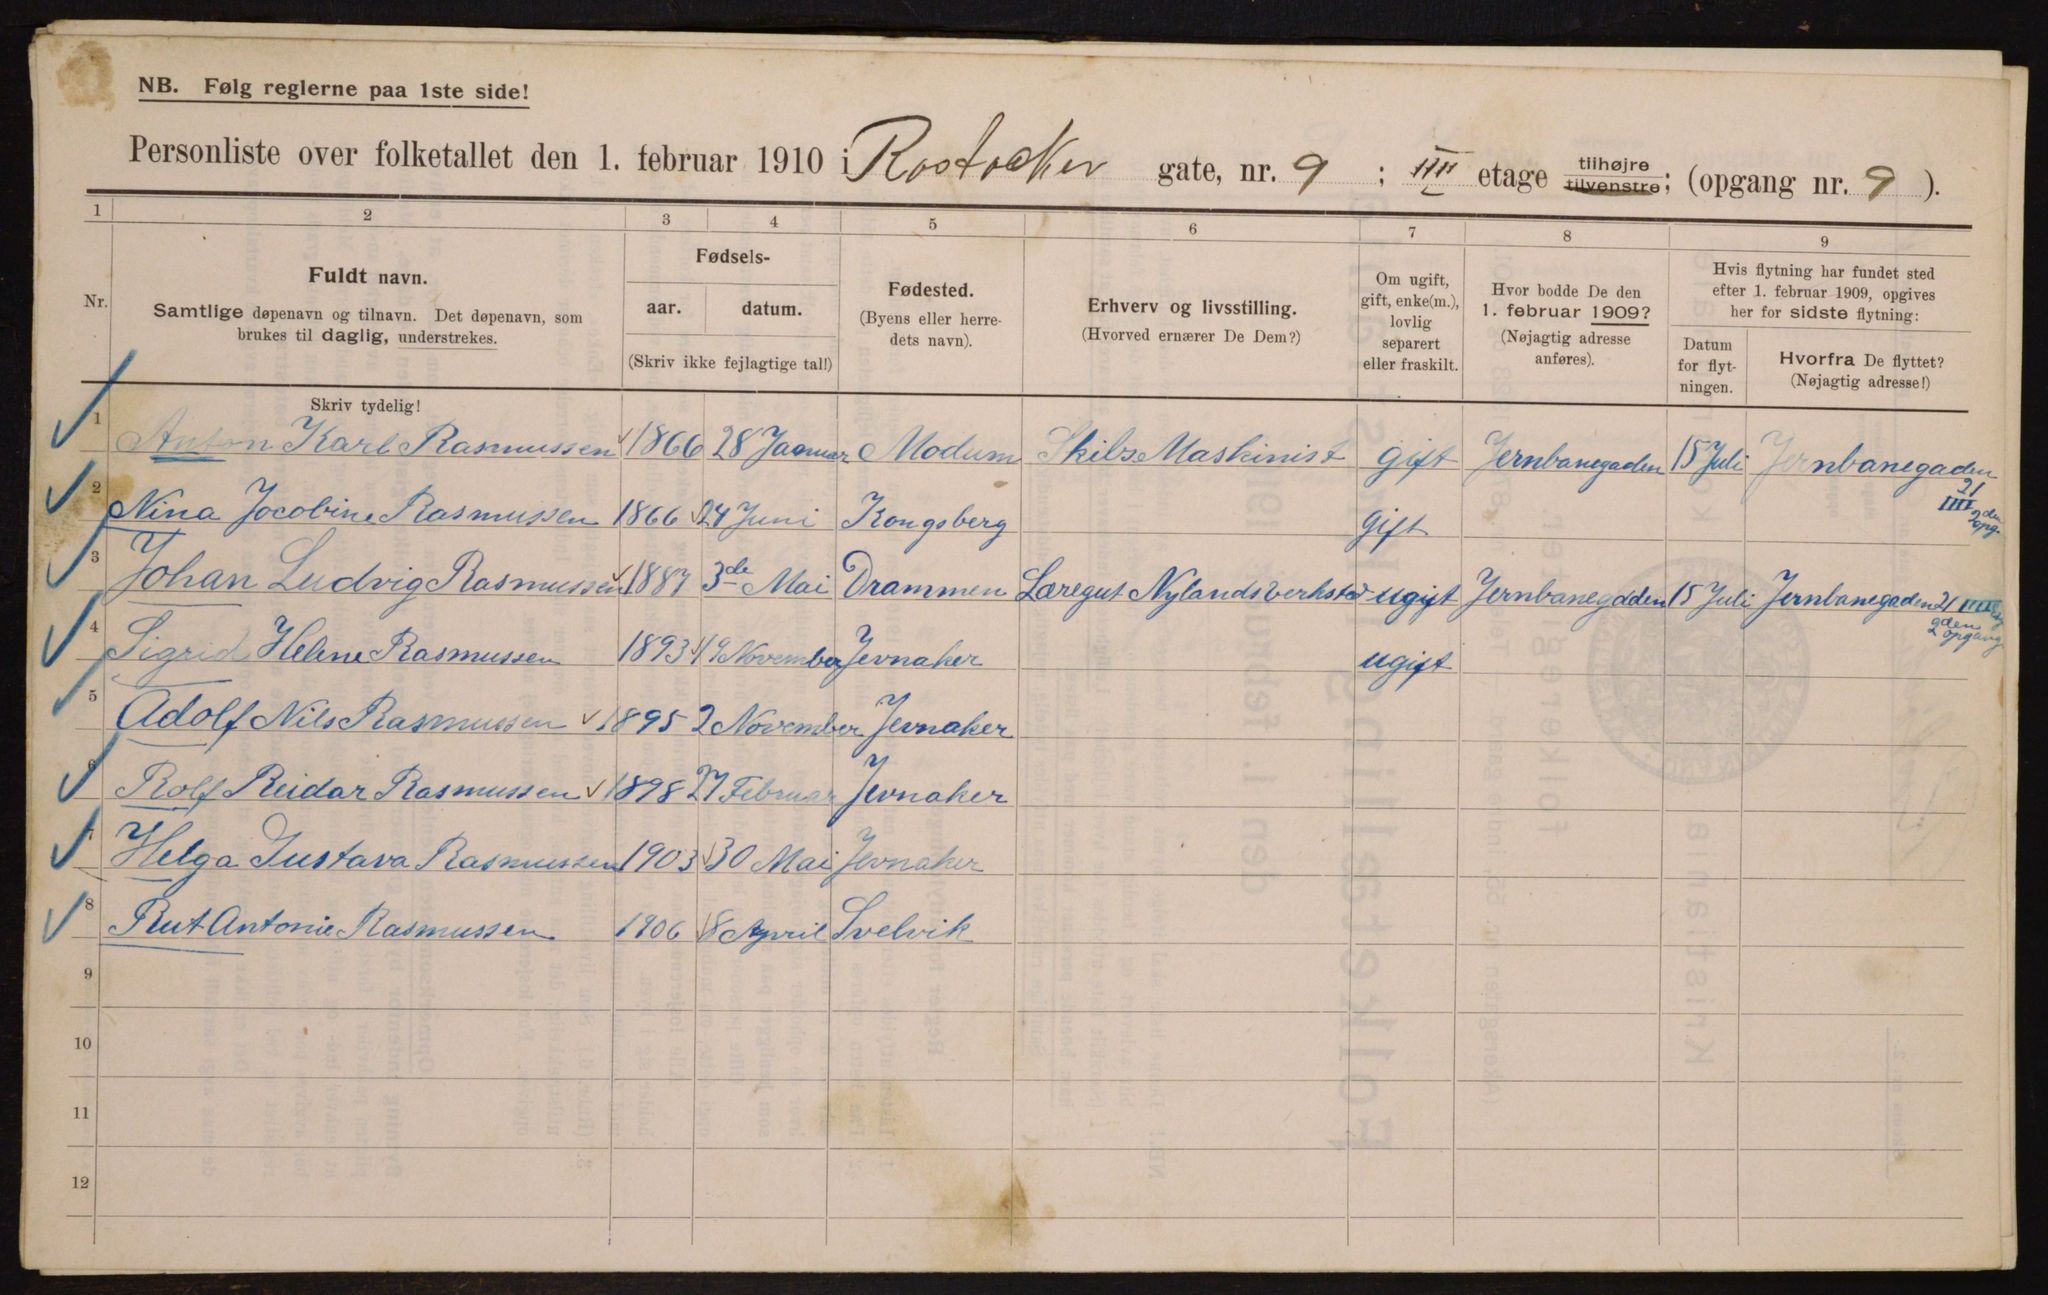 NB. Følg reglerne paa 1ste side!
Personliste over folketallet den 1. februar 1910 i Rostocker gate, nr. 9 ; IIII etage tilhøjre tilvenstre; (opgang nr. 9 ).
1 2 3 4 5 6 7 8 9
Nr.
Fuldt navn.
Samtlige døpenavn og tilnavn. Det døpenavn, som
brukes til daglig, understrekes.
Skriv tydelig!
Fødsels-
aar. datum.
(Skriv ikke fejlagtige tal!)
Fødested.
(Byens eller herre-
dets navn).
Erhverv og livsstilling.
(Hvorved ernærer De Dem?)
Om ugift,
gift, enke(m.),
lovlig
separert
eller fraskilt.
Hvor bodde De den
1. februar 1909?
(Nøjagtig adresse
anføres).
Hvis flytning har fundet sted
efter 1. februar 1909, opgives
her for sidste flytning:
Datum
for flyt-
ningen.
Hvorfra De flyttet?
(Nøjagtig adresse!)
1 Anton Karl Rasmussen 1866 28 Januar Modum Skibs Maskinist gift Jernbanegaden 15 Juli Jernbanegaden
21
IIII 2den
opg.
2 Nina Jocobine Rasmussen 1866 24 Juni Kongsberg gift
3 Johan Ludvig Rasmussen 1887 3de Mai Drammen Læregut Nylandsverksted ugift Jernbanegaden 15 Juli Jernbanegaden 21 IIII
2den
opgang
4 Sigrid Helene Rasmussen 1893 19 November Jevnaker ugift
5 Adolf Nils Rasmussen 1895 2 November Jevnaker
6 Rolf Reidar Rasmussen 1898 27 Februar Jevnaker
7 Helga Gustava Rasmussen 1903 30 Mai Jevnaker
8 Rut Antonie Rasmussen 1906 8 April Svelvik
9
10
11
12